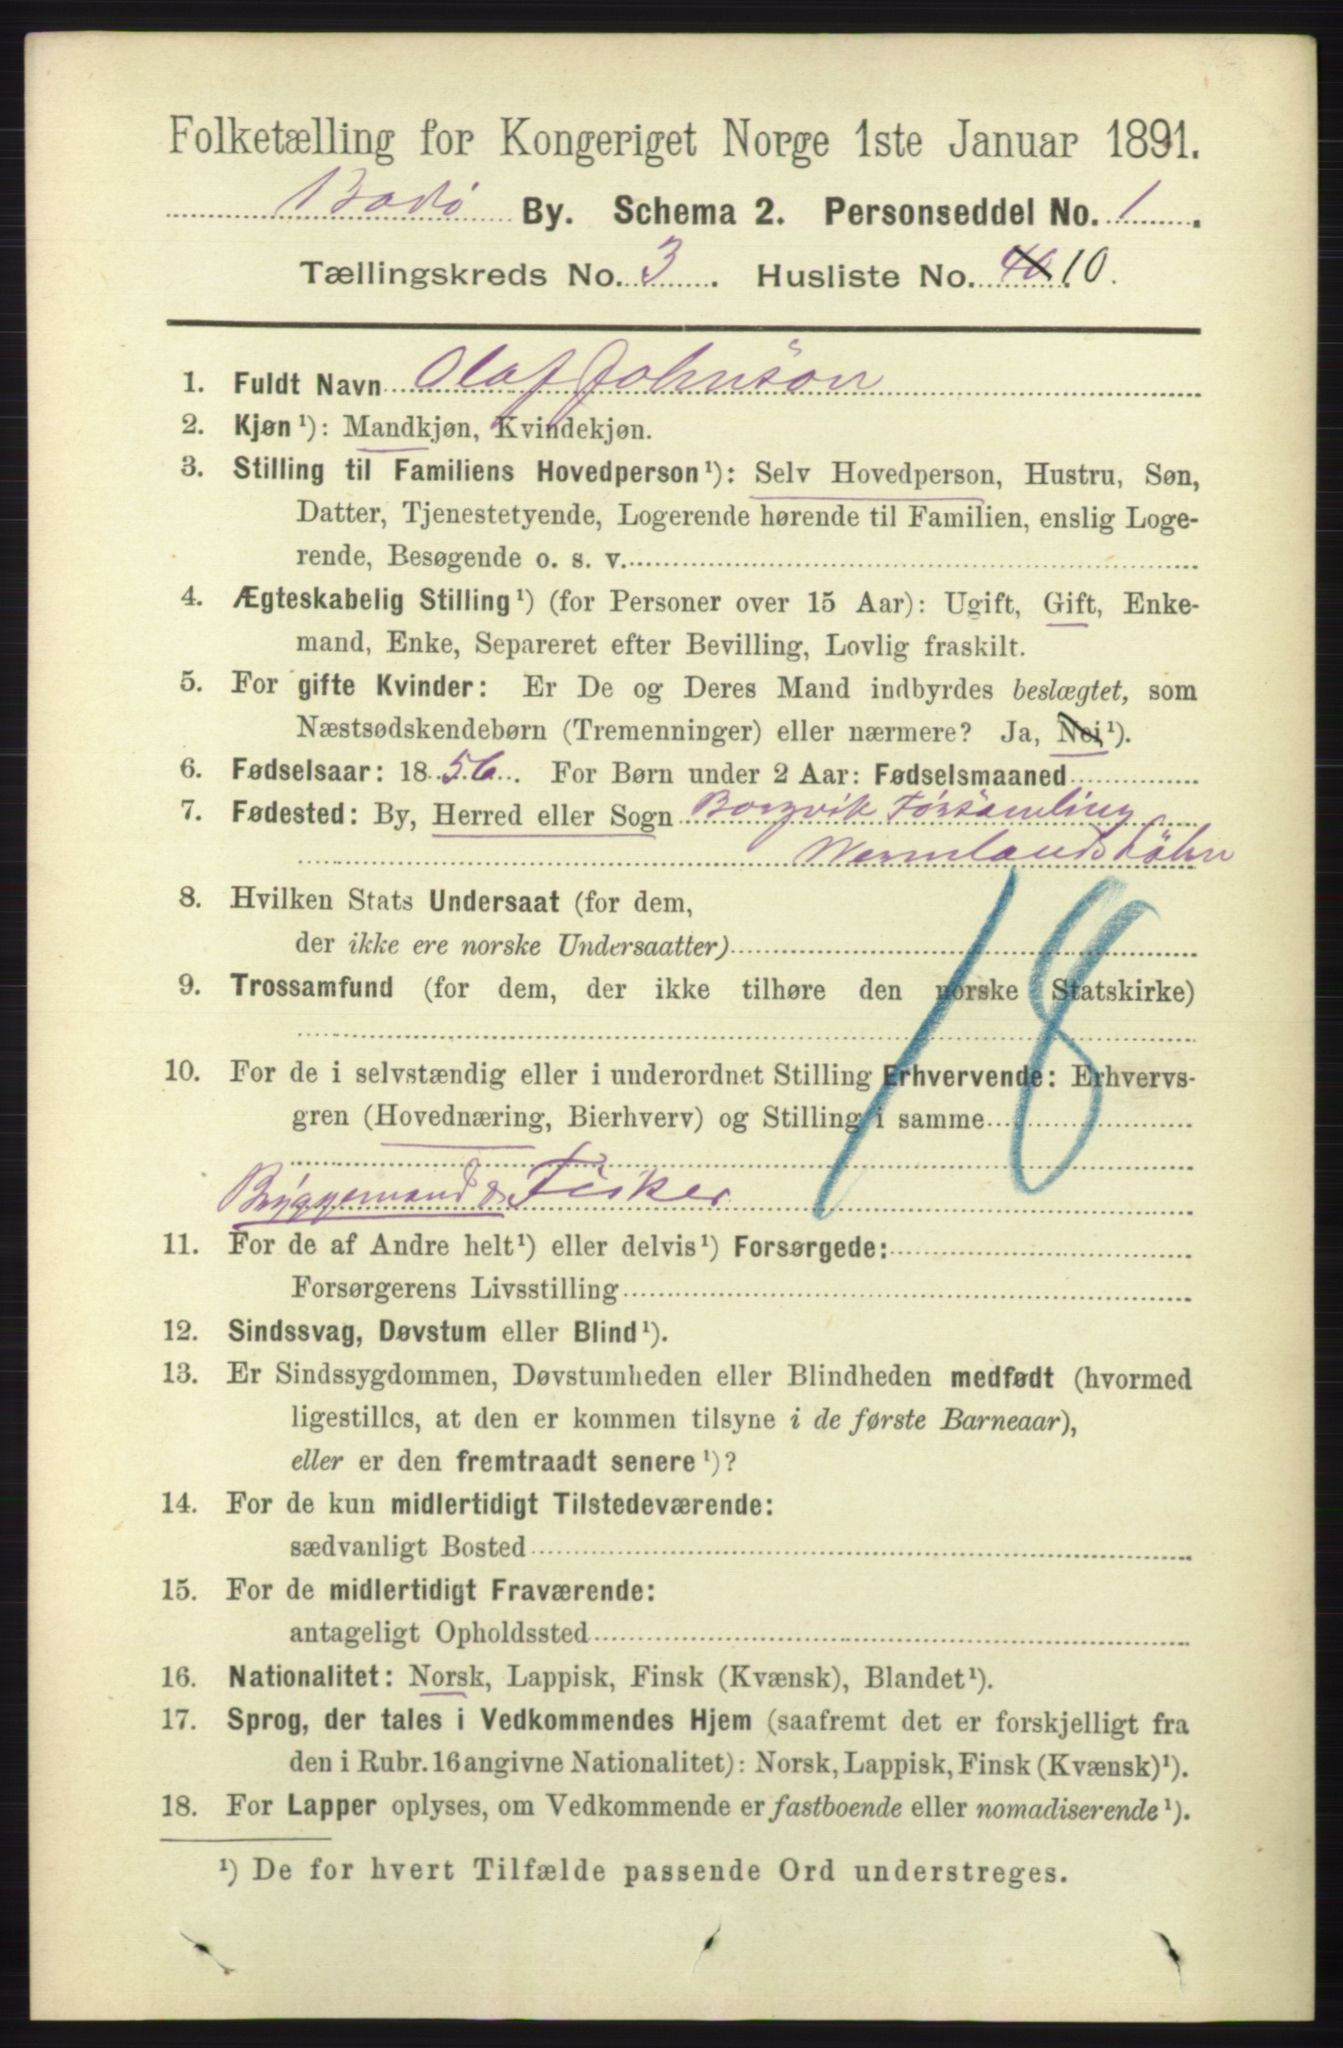 Folketælling for Kongeriget Norge 1ste Januar 1891.
Bodø By. Schema 2. Personseddel No. 1.
Tællingskreds No. 3. Husliste No. 40 10.
1. Fuldt Navn Olaf Johnson
2. Kjøn¹): Mandkjøn, Kvindekjøn.
3. Stilling til Familiens Hovedperson¹): Selv Hovedperson, Hustru, Søn,
Datter, Tjenestetyende, Logerende hørende til Familien, enslig Loge-
rende, Besøgende o. s. v.
4. Ægteskabelig Stilling¹) (for Personer over 15 Aar): Ugift, Gift, Enke-
mand, Enke, Separeret efter Bevilling, Lovlig fraskilt.
5. For gifte Kvinder: Er De og Deres Mand indbyrdes beslægtet, som
Næstsødskendebørn (Tremenninger) eller nærmere? Ja, Nei¹).
6. Fødselsaar: 1856. For Børn under 2 Aar: Fødselsmaaned
7. Fødested: By, Herred eller Sogn Borgvik Församling
Wermlands Löhn
8. Hvilken Stats Undersaat (for dem,
der ikke ere norske Undersaatter)
9. Trossamfund (for dem, der ikke tilhøre den norske Statskirke)
18
10. For de i selvstændig eller i underordnet Stilling Erhvervende: Erhvervs-
gren (Hovednæring, Bierhverv) og Stilling i samme
Bryggemand & Fisker
11. For de af Andre helt¹) eller delvis¹) Forsørgede:
Forsørgerens Livsstilling
12. Sindssvag, Døvstum eller Blind¹).
13. Er Sindssygdommen, Døvstumheden eller Blindheden medfødt (hvormed
ligestilles, at den er kommen tilsyne i de første Barneaar),
eller er den fremtraadt senere¹)?
14. For de kun midlertidigt Tilstedeværende:
sædvanligt Bosted
15. For de midlertidigt Fraværende:
antageligt Opholdssted
16. Nationalitet: Norsk, Lappisk, Finsk (Kvænsk), Blandet¹).
17. Sprog, der tales i Vedkommendes Hjem (saafremt det er forskjelligt fra
den i Rubr. 16 angivne Nationalitet): Norsk, Lappisk, Finsk (Kvænsk)¹).
18. For Lapper oplyses, om Vedkommende er fastboende eller nomadiserende¹).
¹) De for hvert Tilfælde passende Ord understreges.